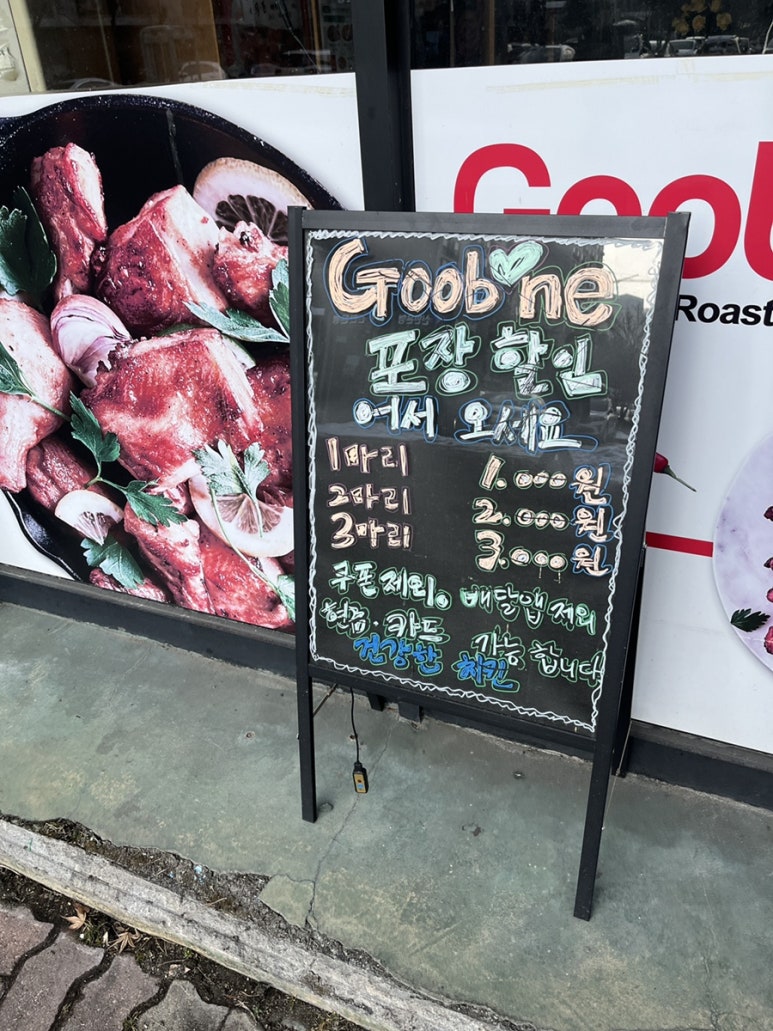 Goob
Roast
Goobne
포장 할인
어서 오세요
1마리 1.000원
2마리 2.000원
3마리 3.000원
쿠폰제외. 배달앱 제외
현금·카드 가능합니다
건강한 치킨